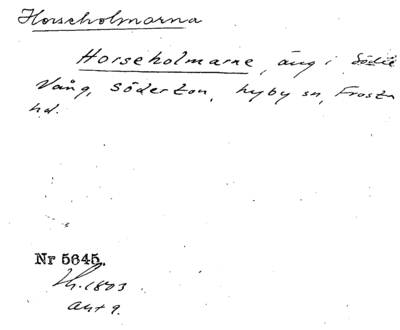 Horseholmarna
Horseholmarne, äng i Södre
Vång, Söderton, Hyby sn, Frosta
hd.
Nr 5645.
Lh. 1803
akt 9.